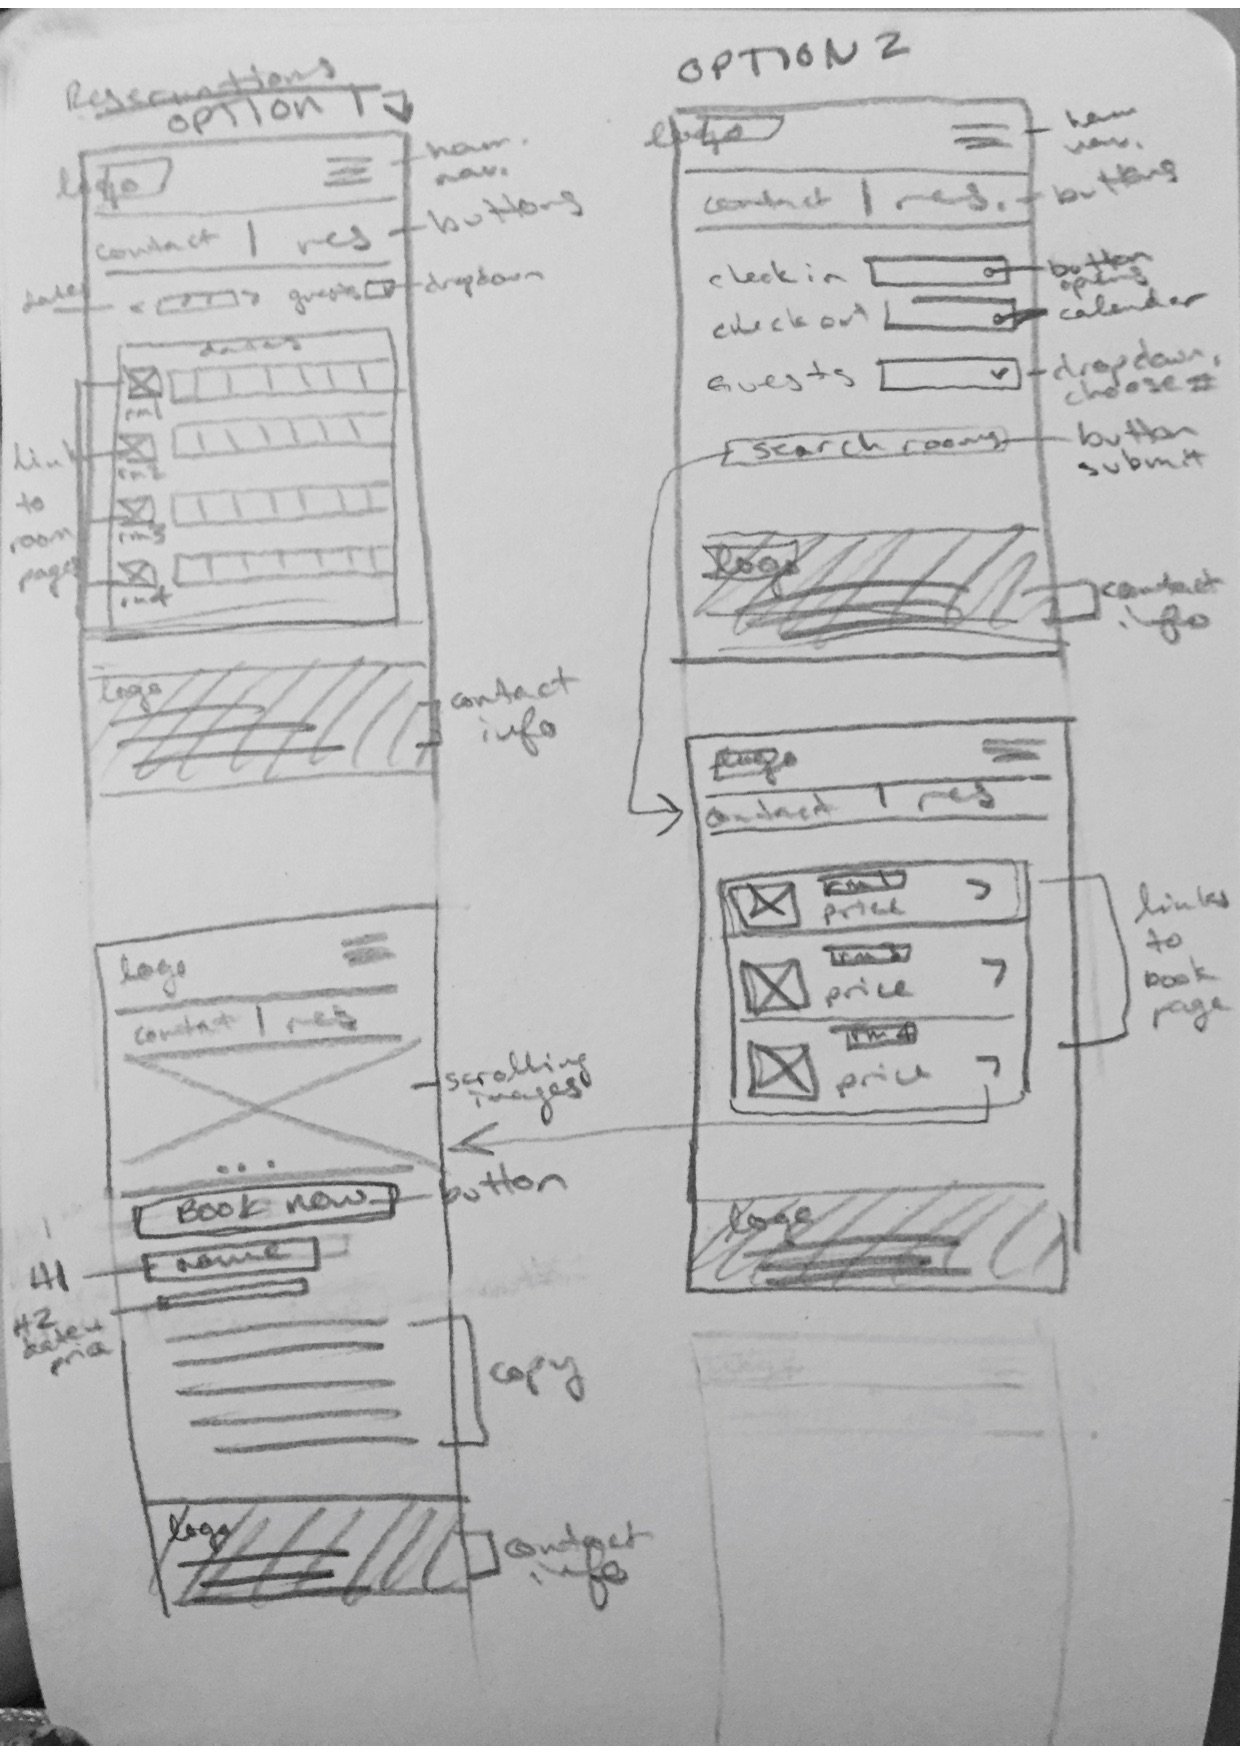 Reservations
OPTION 1
logo
ham.
nav.
contact | res
buttons
dates
guests
dropdown
dates
rm1
rm2
rm3
rm4
link
to
room
pages
logo
contact
info
logo
contact | res
scrolling
images
...
Book now
button
H1
name
H2
price
copy
logo
contact
info
OPTION 2
logo
ham
nav.
contact | res.
buttons
check in
button
opens
check out
calender
Guests
dropdown,
choose #
search rooms
button
submit
logo
contact
info
logo
contact | res
rm 1
price
price
rm 4
price
links
to
book
page
logo